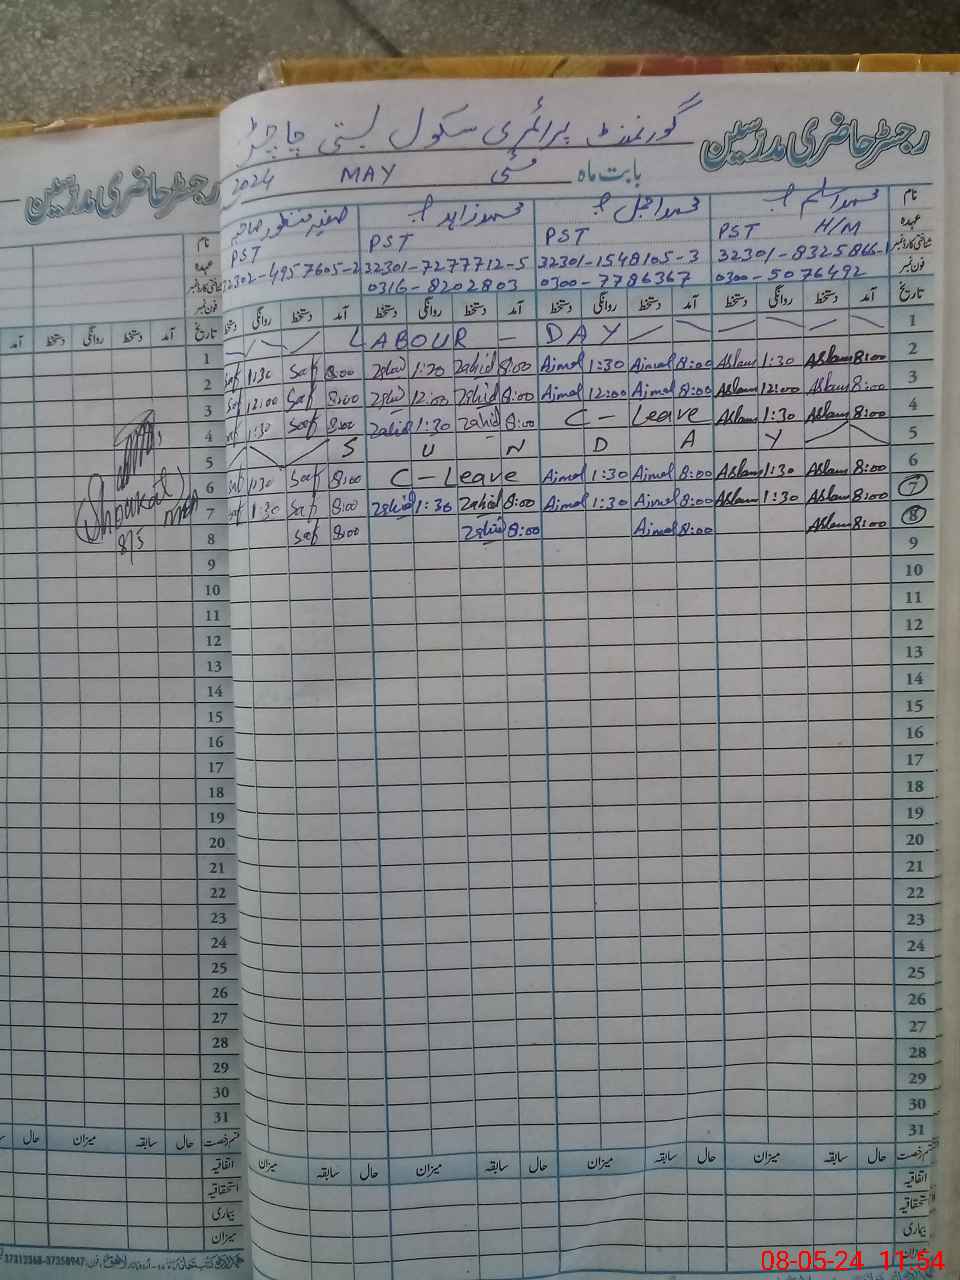 رجسٹر حاضری مدرسین گورنمنٹ پرائمری سکول بستی چاچڑ
بابت ماہ مئی MAY 2024
نام محمد اسلم محمد اجمل محمد زاہد صغیر منظور
عہدہ PST H/M PST PST PST
شناختی کارڈ نمبر 32301-8325866-1 32301-1548105-3 32301-7277712-5 32302-4957605-2
فون نمبر 0300-5076492 0300-7786367 0316-8202803
تاریخ آمد دستخط روانگی دستخط آمد دستخط روانگی دستخط آمد دستخط روانگی دستخط آمد دستخط روانگی دستخط
1 LABOUR - DAY
2 8:00 Aslam 1:30 Aslam 8:00 Ajmal 1:30 Ajmal 8:00 Zahid 1:30 Zahid 8:00 Saf 1:30 Saf
3 8:00 Aslam 12:00 Aslam 8:00 Ajmal 12:00 Ajmal 8:00 Zahid 12:00 Zahid 8:00 Saf 12:00 Saf
4 8:00 Aslam 1:30 Aslam C-Leave 8:00 Zahid 1:30 Zahid 8:00 Saf 1:30 Saf
5 S U N D A Y
6 8:00 Aslam 1:30 Aslam 8:00 Ajmal 1:30 Ajmal C-Leave 8:00 Saf 1:30 Saf
7 8:00 Aslam 1:30 Aslam 8:00 Ajmal 1:30 Ajmal 8:00 Zahid 1:30 Zahid 8:00 Saf 1:30 Saf
8 8:00 Aslam 8:00 Ajmal 8:00 Zahid 8:00 Saf
9
10
11
12
13
14
15
16
17
18
19
20
21
22
23
24
25
26
27
28
29
30
31
قسم رخصت حال سابقہ میزان حال سابقہ میزان حال سابقہ میزان حال سابقہ میزان
اتفاقیہ
استحقاقیہ
بیماری
میزان
رجسٹر حاضری مدرسین
نام
عہدہ
شناختی کارڈ نمبر
فون نمبر
تاریخ آمد دستخط روانگی دستخط آمد
1
2
3
4
5
6
7
8
9
10
11
12
13
14
15
16
17
18
19
20
21
22
23
24
25
26
27
28
29
30
31
Shoukat
8/5
قسم رخصت حال سابقہ میزان حال
اتفاقیہ
استحقاقیہ
بیماری
میزان
37313368-37350947
08-05-24 11:54